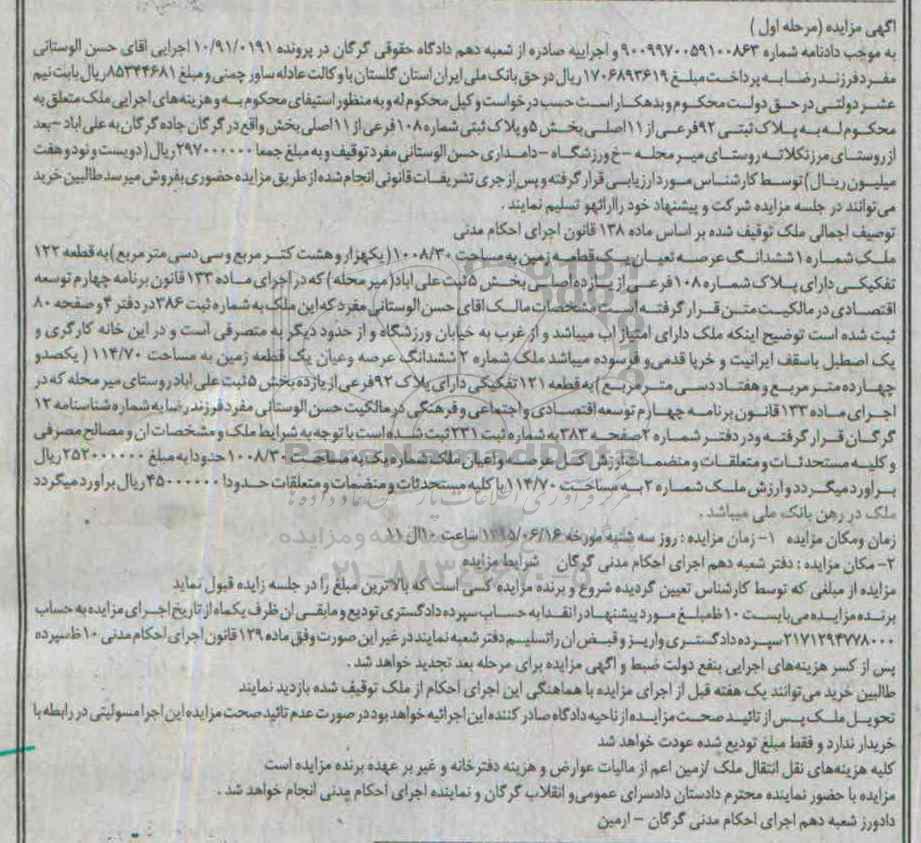 اگهی مزایده (مرحله اول)
به موجب دادنامه شماره ۹۰۰۹۹۷۰۰۵۹۱۰۰۸۶۳ و اجراییه صادره از شعبه دهم دادگاه حقوقی گرگان در پرونده ۱۰/۹۱/۰۱۹۱ اجرایی اقای حسن الوستانی
مفرد فرزند رضا به پرداخت مبلغ ۱۷۰۶۸۹۳۶۱۹ ریال در حق بانک ملی ایران استان گلستان با وکالت عادله ساور چمنی و مبلغ ۸۵۳۴۴۶۸۱ ریال بابت نیم
عشر دولتی در حق دولت محکوم و بدهکار است حسب درخواست وکیل محکوم له و به منظور استیفای محکوم به و هزینه های اجرایی ملک متعلق به
محکوم له به پلاک ثبتی ۹۲ فرعی از ۱۱ اصلی بخش ۵ و پلاک ثبتی شماره ۱۰۸ فرعی از ۱۱ اصلی بخش واقع در گرگان جاده گرگان به علی اباد - بعد
از روستای مرزنکلاته روستای میر محله - خ ورزشگاه - دامداری حسن الوستانی مفرد توقیف و به مبلغ جمعا ۲۹۷۰۰۰۰۰۰ ریال (دویست و نود و هفت
میلیون ریال) توسط کارشناس مورد ارزیابی قرار گرفته و پس از جری تشریفات قانونی انجام شده از طریق مزایده حضوری بفروش میرسد طالبین خرید
می توانند در جلسه مزایده شرکت و پیشنهاد خود را ارائهو تسلیم نمایند .
توصیف اجمالی ملک توقیف شده بر اساس ماده ۱۳۸ قانون اجرای احکام مدنی
ملک شماره ۱ ششدانگ عرصه نعیان یک قطعه زمین به مساحت ۱۰۰۸/۳۰ (یکهزار و هشت کتر مربع و سی دسی متر مربع) به قطعه ۱۲۲
تفکیکی دارای پلاک شماره ۱۰۸ فرعی از یازده اصلی بخش ۵ ثبت علی اباد (میر محله) که در اجرای ماده ۱۳۳ قانون برنامه چهارم توسعه
اقتصادی در مالکیت متن قرار گرفته است مشخصات مالک اقای حسن الوستانی مفرد که این ملک به شماره ثبت ۳۸۶ در دفتر ۴ و صفحه ۸۰
ثبت شده است توضیح اینکه ملک دارای امتیاز اب میباشد و از غرب به خیابان ورزشگاه و از حدود دیگر به متصرفی است و در این خانه کارگری و
یک اصطبل باسقف ایرانیت و خرپا قدمی و فرسوده میباشد ملک شماره ۲ ششدانگ عرصه وعیان یک قطعه زمین به مساحت ۱۱۴/۷۰ ( یکصدو
چهارده متر مربع و هفتاد دسی متر مربع) به قطعه ۱۲۱ تفکیکی دارای پلاک ۹۲ فرعی از یازده بخش ۵ ثبت علی اباد روستای میر محله که در
اجرای ماده ۱۳۳ قانون برنامه چهارم توسعه اقتصادی و اجتماعی و فرهنگی در مالکیت حسن الوستانی مفرد فرزند رضا به شماره شناسنامه ۱۲
گرگان قرار گرفته ودر دفتر شماره ۲ صفحه ۳۸۳ به شماره ثبت ۲۳۱ ثبت شده است با توجه به شرایط ملک و مشخصات ان و مصالح مصرفی
و کلیه مستحدثات و متعلقات و منضمات ارزش کل عرصه و اعیان ملک شماره یک به مساحت ۱۰۰۸/۳۰ حدودا به مبلغ ۲۵۲۰۰۰۰۰۰ ریال
براورد میگردد و ارزش ملک شماره ۲ به مساحت ۱۱۴/۷۰ با کلیه مستحدثات و منضمات و متعلقات حدودا ۴۵۰۰۰۰۰۰ ریال براورد میگردد
ملک در رهن بانک ملی میباشد .
زمان ومکان مزایده ۱- زمان مزایده : روز سه شنبه مورخه ۱۳۹۵/۰۶/۱۶ ساعت ۱۰ ال ۱۱
۲- مکان مزایده : دفتر شعبه دهم اجرای احکام مدنی گرگان شرایط مزایده
مزایده از مبلغی که توسط کارشناس تعیین گردیده شروع و برنده مزایده کسی است که بالاترین مبلغ را در جلسه زایده قبول نماید
برنده مزایده می بایست ۱۰٪ مبلغ مورد پیشنهاد را نقدا به حساب سپرده دادگستری تودیع و مابقی ان ظرف یکماه از تاریخ اجرای مزایده به حساب
۲۱۷۱۲۹۴۷۷۸۰۰۰ سپرده دادگستری واریز و قبض ان را تسلیم دفتر شعبه نمایند در غیر این صورت وفق ماده ۱۲۹ قانون اجرای احکام مدنی ۱۰٪ سپرده
پس از کسر هزینه های اجرایی بنفع دولت ضبط و اگهی مزایده برای مرحله بعد تجدید خواهد شد .
طالبین خرید می توانند یک هفته قبل از اجرای مزایده با هماهنگی این اجرای احکام از ملک توقیف شده بازدید نمایند
تحویل ملک پس از تائید صحت مزایده از ناحیه دادگاه صادر کننده این اجرائیه خواهد بود در صورت عدم تائید صحت مزایده این اجرا مسولیتی در رابطه با
خریدار ندارد و فقط مبلغ تودیع شده عودت خواهد شد
کلیه هزینه های نقل انتقال ملک /زمین اعم از مالیات عوارض و هزینه دفترخانه و غیر بر عهده برنده مزایده است
مزایده با حضور نماینده محترم دادستان دادسرای عمومی و انقلاب گرگان و نماینده اجرای احکام مدنی انجام خواهد شد .
دادورز شعبه دهم اجرای احکام مدنی گرگان - ارمین
ParsNamadData
۰۲۱-۸۸۳۴۹۶۷۰-۵